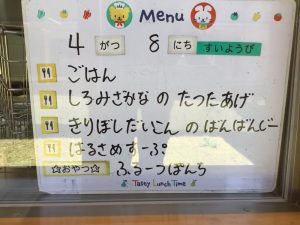 Menu
4 がつ 8 にち すいようび
ごはん
しろみさかな の たつたあげ
きりぼしだいこん の ばんばんじー
はるさめすーぷ
☆おやつ☆ ふるーつぽんち
Tasty Lunch Time